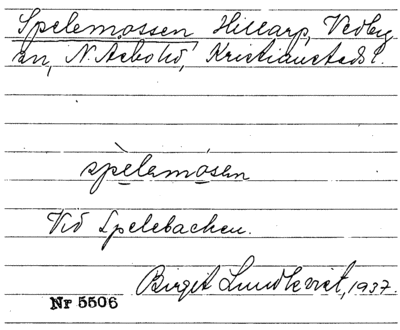 Spelemossen, Hillarp, Vedby
sn, N. Åsbo hd, Kristianstads l.
spelemosen
Vid Spelebacken.
Birgit Lundkvist, 1937.
Nr 5506